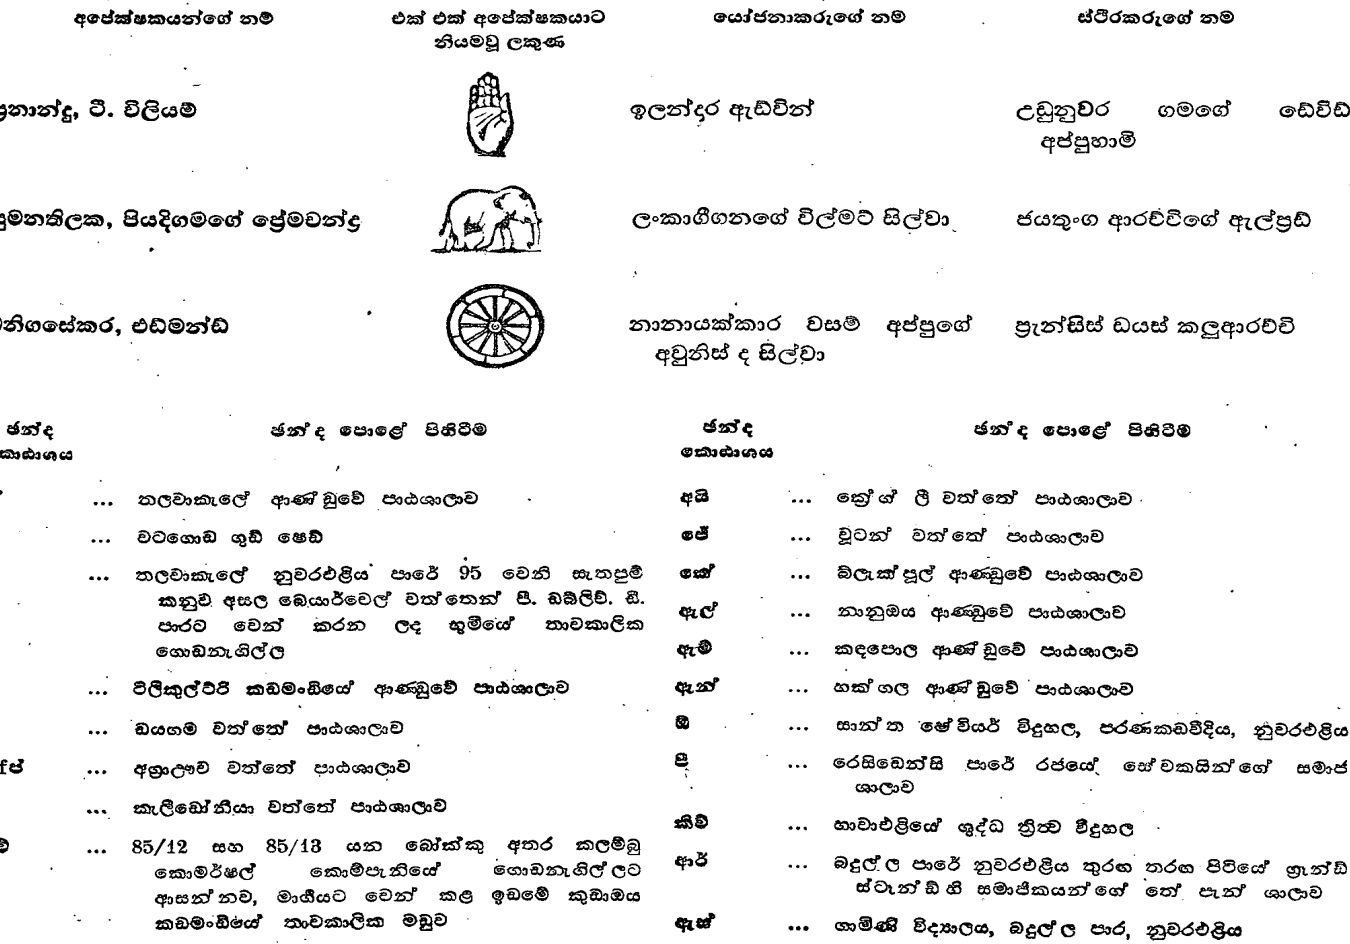 අපේක්ෂකයන්ගේ නම්
එක් එක් අපේක්ෂකයාට
නියමවූ ලකුණ
යෝජනාකරුගේ නම
ස්ථිරකරුගේ නම
ප්‍රනාන්දු, ටී. විලියම්
ඉලන්දර ඇඩ්වින්
උඩුනුවර ගමගේ ඩේවිඩ්
අප්පුහාමි
සුමනතිලක, පියදිගමගේ ප්‍රේමචන්ද්‍ර
ලංකාගීගනගේ විල්මට් සිල්වා
ජයතුංග ආරච්චිගේ ඇල්ප්‍රඩ්
විජේසේකර, එඩ්මන්ඩ්
නානායක්කාර වසම් අප්පුගේ
අවුනිස් ද සිල්වා
ප්‍රැන්සිස් ඩයස් කලුආරච්චි
ඡන්ද
කොඨාශය
ඡන්ද පොළේ පිහිටීම
... තලවාකැලේ ආණ්ඩුවේ පාඨශාලාව
... වටගොඩ ගුඩ් ෂෙඩ්
... තලවාකැලේ නුවරඑළිය පාරේ 95 වෙනි සැතපුම්
කනුව අසල බෙයාර්වෙල් වත්තෙන් පී. ඩබ්ලිව්. ඩී.
පාරට වෙන් කරන ලද භූමියේ තාවකාලික
ගොඩනැගිල්ල
... ටිලිකුල්ට්රි කඩමංඩියේ ආණ්ඩුවේ පාඨශාලාව
... ඩයගම වත්තේ පාඨශාලාව
... අග්‍රාඌව වත්තේ පාඨශාලාව
... කැලිඩෝනියා වත්තේ පාඨශාලාව
... 85/12 සහ 85/13 යන බෝක්කු අතර කලම්බු
කොමර්ෂල් කොම්පැනියේ ගොඩනැගිල්ලට
ආසන්නව, මාර්ගයට වෙන් කළ ඉඩමේ කුඩාඔය
කඩමංඩියේ තාවකාලික මඩුව
ඡන්ද
කොඨාශය
ඡන්ද පොළේ පිහිටීම
අයි ... ක්‍රේග් ලී වත්තේ පාඨශාලාව
ජේ ... වූටන් වත්තේ පාඨශාලාව
කේ ... බ්ලැක්පූල් ආණ්ඩුවේ පාඨශාලාව
ඇල් ... නානුඔය ආණ්ඩුවේ පාඨශාලාව
ඇම් ... කඳපොල ආණ්ඩුවේ පාඨශාලාව
ඇන් ... හක්ගල ආණ්ඩුවේ පාඨශාලාව
ඕ ... සාන්ත ෂේවියර් විදුහල, පරණකඩවීදිය, නුවරඑළිය
පී ... රෙසිඩෙන්සි පාරේ රජයේ සේවකයින්ගේ සමාජ
ශාලාව
කිව් ... හාවාඑළියේ ශුද්ධ ත්‍රිත්ව විදුහල
ආර් ... බදුල්ල පාරේ නුවරඑළිය තුරඟ තරඟ පිටියේ ග්‍රෑන්ඩ්
ස්ටෑන්ඩ් හි සමාජිකයන්ගේ තේ පැන් ශාලාව
ඇස් ... ගාමිණී විද්‍යාලය, බදුල්ල පාර, නුවරඑළිය